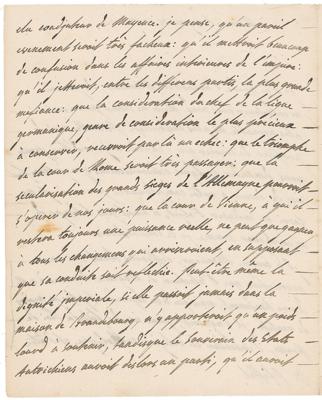 du coadjuteur de Mayence. je pense, qu'un pareil
evenement seroit très facheux: qu'il mettroit beaucoup
de confusion dans les affaires interieures de l'empire:
qu'il jetteroit, entre les differens partis, la plus grande
mefiance: que la consideration du chef de la ligue
germanique, genre de consideration le plus précieux
à conserver, recevroit par là un echec: que le triomphe
de la cour de Rome seroit très passager: que la
secularisation des grands sieges de l'Allemagne pourroit
s'operer de nos jours: que la cour de Vienne, à qui il
restera toujours une puissance reelle, ne peut que gagner
à tous les changemens qui arriveroient, en supposant
que sa conduite soit reflechie. Peut-être même la
dignité imperiale, si elle passoit jamais dans la
maison de Brandbourg, n'y apporteroit qu'un poids
lourd à soutenir, tandisque le Souverain des Etats
Autrichiens auroit deslors un parti, qu'il auroit